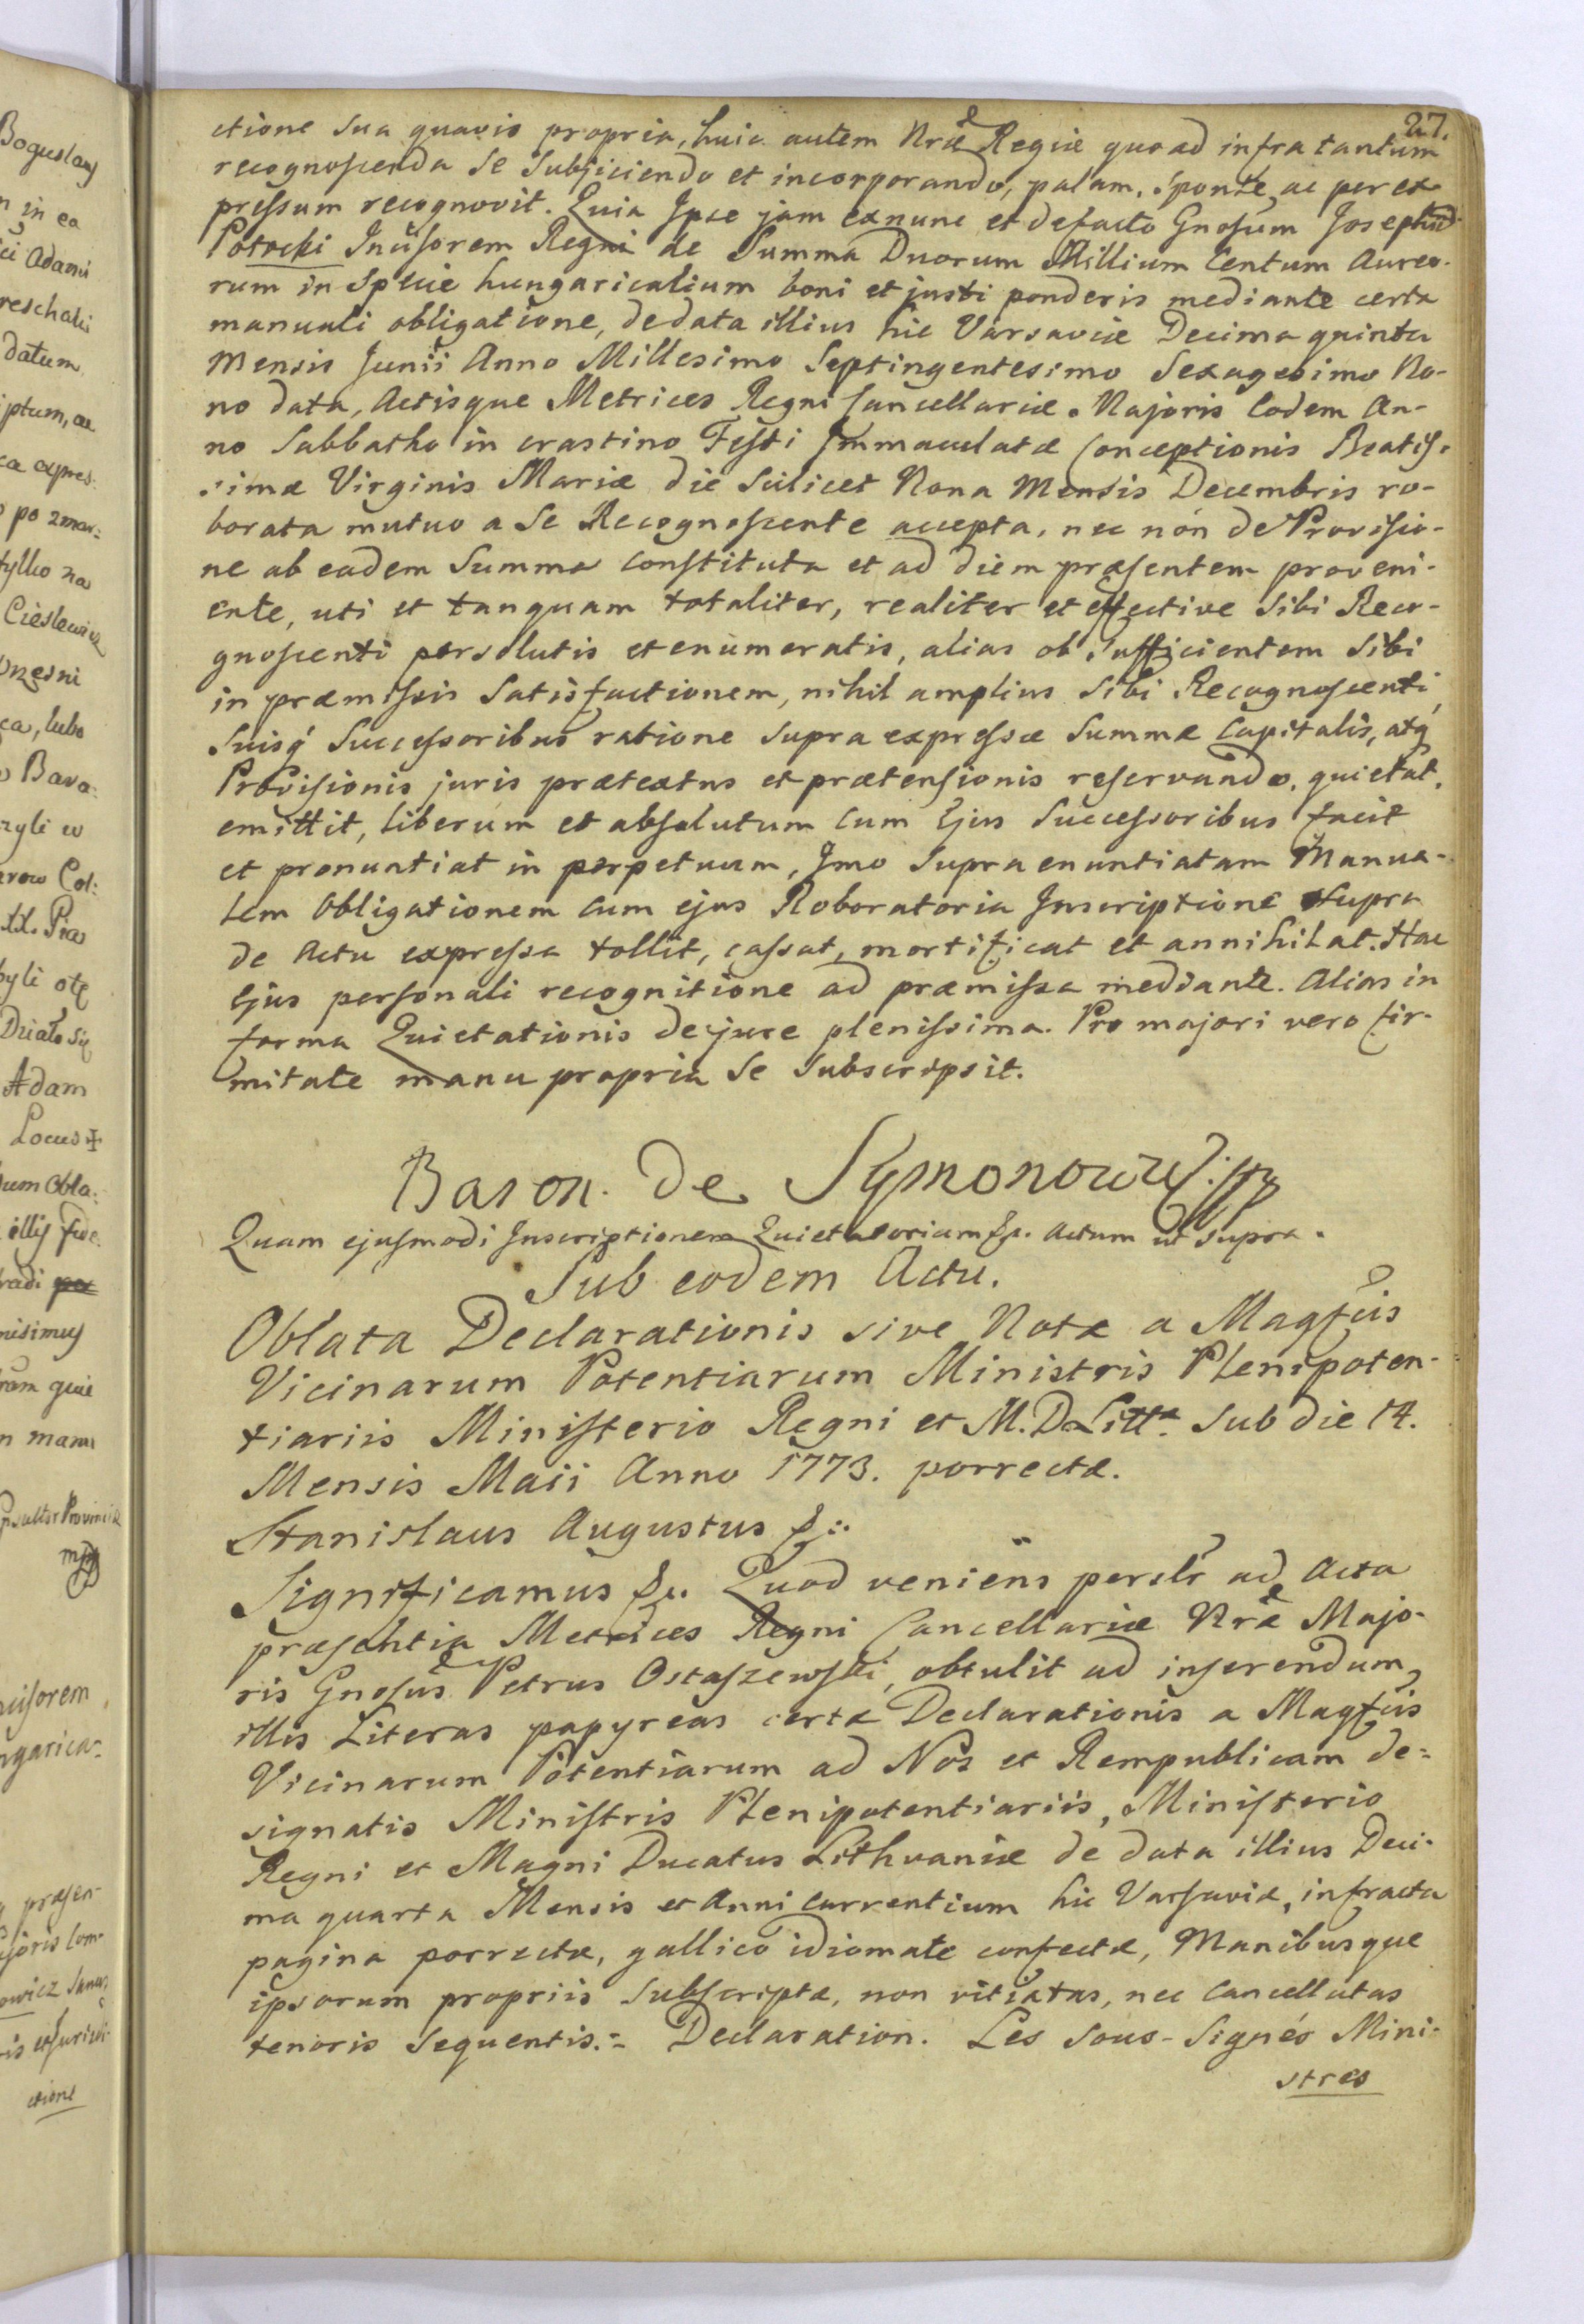 27.
ctione sua quavis propria, huic autem Nræ Regiæ quoad infra tantum
recognoscenda se subjiciendo et incorporando, palam, sponte ac per ex
pressum recognovit. Quia Ipse jam exnunc et defacto Gnosum Josephum
Potocki Incisorem Regni de Summa Duorum Millium Centum Aureo-
rum in specie hungaricalium boni et justi ponderis mediante certa
manuali obligatione, dedata illius hic Varsaviæ Decima quinta
Mensis Junii Anno Millesimo Septingentesimo Sexagesimo No-
no data, Actisque Metrices Regni Cancellariæ Majoris Eodem An-
no Sabbatho in crastino Festi Immaculatæ Conceptionis Beatis-
simæ Virginis Mariæ die scilicet Nona Mensis Decembris ro-
borata mutuo a se Recognoscente accepta, nec non de Provisio-
ne ab eadem Summa constituta et ad diem præsentem proveni-
ente, uti et tanquam totaliter, realiter et effective sibi Reco-
gnoscenti persolutis et enumeratis, alias ob sufficientem sibi
in præmissis satisfactionem, nihil amplius sibi Recognoscenti,
suisq́ Successoribus ratione supra expressæ Summæ Capitalis, atq́
Provisionis juris prætextus et prætensionis reservando, quietat,
emittit, liberum et absolutum cum Ejus Successoribus facit
et pronuntiat in perpetuum, Imo supra enuntiatam Manua-
lem Obligationem cum ejus Roboratoria Inscriptione supra
de Actu expressa tollit, cassat, mortificat et annihilat. Hac
Ejus personali recognitione ad præmissa mediante. Alias in
forma Quietationis dejure plenissima. Pro majori vero fir-
mitate manu propria se subscripsit.
Baron de Symonowicz. mp
Quam ejusmodi Inscriptionem Quietatoriam &. Actum ut supra.
Sub eodem Actu.
Oblata Declarationis sive Notæ a Magfcis
Vicinarum Potentiarum Ministris Plenipoten-
tiariis Ministerio Regni et M. D. Litt. sub die 14.
Mensis Maii Anno 1773. porrectæ.
Stanislaus Augustus &:.
Significamus &. Quod veniens persłr ad Acta
præsentia Metrices Regni Cancellariæ Nræ Majo-
ris Gnosus Petrus Ostaszewski, obtulit ad inserendum
illis Literas papyreas certæ Declarationis a Magfcis
Vicinarum Potentiarum ad Nos et Rempublicam de-
signatis Ministris Plenipotentiariis, Ministerio
Regni et Magni Ducatus Lithvaniæ de data illius Deci-
ma quarta Mensis et Anni currentium hic Varsaviæ, infracta
pagina porrectæ, gallico idiomate confectæ, Manibusque
ipsorum propriis subscriptæ, non vitiatas, nec cancellatas
tenoris sequentis.:- Declaration. Les Sous-Signés Mini-
stres